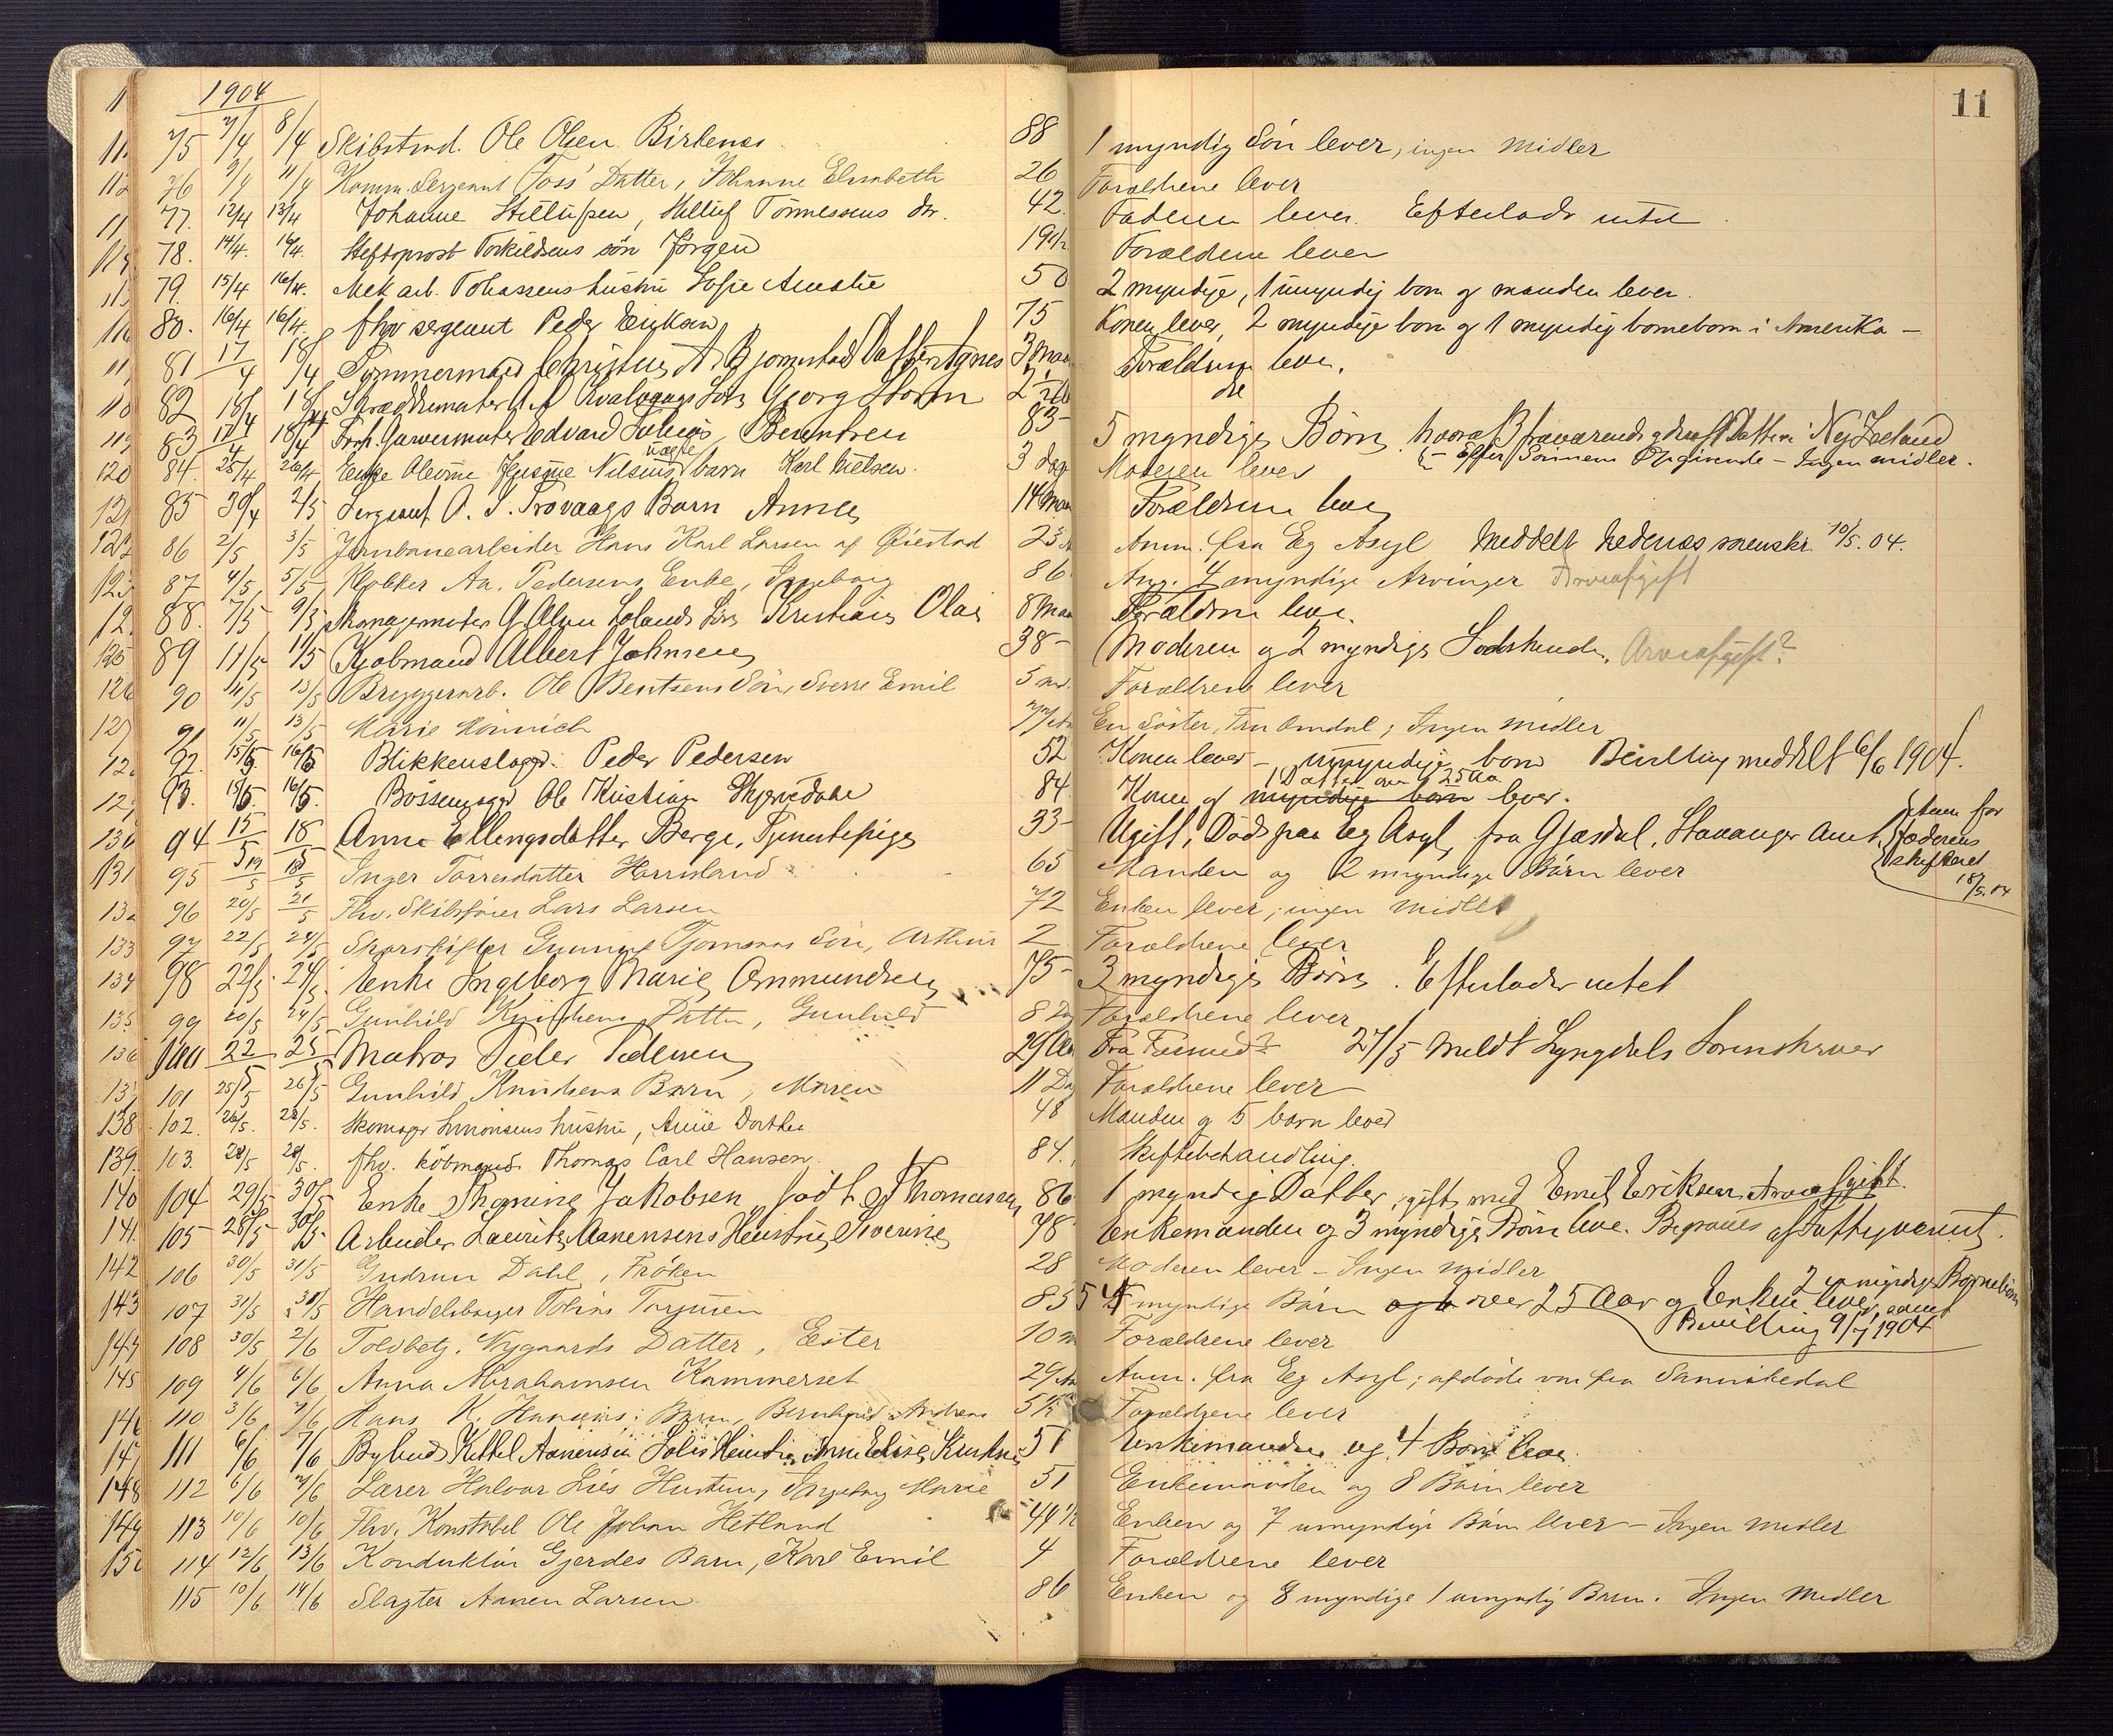 11
1904
75 7/4 8/4 Skibstmd. Ole Olsen Birkenes 88 1 myndig Søn lever, ingen Midler
76 9/4 11/4 Komm. Sergeant Foss' Datter, Johanne Elisabeth 26 Forældrene lever
77. 12/4 13/4 Johanne, Tönnessens dr. 42. Faderen lever. Efterlader intet.
78. 14/4. 16/4. Stiftsprost Torkildsens sön Jörgen 19 Forældrene lever
79. 15/4 16/4. Mek arb. Tobiassens hustru Sofie Amalie 50 2 myndige, 1 umyndig born og manden lever.
80. 16/4 16/4. fhv sergeant Peder Eriksen 75 Konen lever, 2 myndige born og 1 myndig bornebarn i Amerika –
81 17/4 18/4 Tømmermand A. Bjornstad Datter Agnes 3 Maa Forældrene lever.
82 18/4 Skræddermester Søn Georg Storm 2 do
83 17/4 18/4 Forh. Garvermester Edvard Julius Berentsen 83– 5 myndige Børn, hvoraf 3 fraværende Datter i Ny Zeeland
– Efter Sønnens Opgivende – Ingen midler.
120 84. 25/4 26/4 Enke Olevine Nilsens uægte barn Karl Nielsen. 3 dage Moderen lever
121 85 30/4 2/5 Sergeant Trovaags Barn Anna 14 Maa Forældrene lever
122 86 2/5 3/5 Jernbanearbeider Hans Karl Larsen af Øiestad 23 Anm. fra Eg Asyl Meddelt Nedenæs sorenskr. 10/5. 04.
123 87 4/5 5/5 Klokker Aa. Pedersens Enke, Ingeborg 86 Ang. 4 myndige Arvinger Arveafgift
88. 7/5 9/5 Skomagermester Lolands Søn Kristian Olai 8 Maa Forældrene lever.
125 89 11/5 11/5 Kjøbmand Albert Johnsen 38– Moderen og 2 myndige Sødskende. Arveafgift?
126 90 11/5 13/5 Bryggerarb. Ole Bentsens Søn, Sverre Emil 5 md. Forældrene lever
127 91 11/5 13/5 Marie 77 En Søster, Fru Omdal; Ingen Midler
92. 15/5. 16/5 Blikkenslager Peder Pedersen 52 Konen lever – umyndige born Bevilling meddelt 6/6 1904.
1 Datter over 25 Aar
129 93. 15/5. 16/5. Bössemager Ole Kristian 84. Konen og myndige born lever.
130 94 15/5 18/5 Anna Ellingsdatter Berge, Tjenestepige 33– Ugift, Død paa Eg Asyl, fra Gjæsdal, Stavanger Amt,
Skifteret
18/5. 04
131 95 18/5 Inger Torresdatter 65 Manden og 2 myndige Børn lever
132 96 20/5 21/5 Fhv. Skibsfører Lars Larsen 72 Enken lever; ingen Midler
133 97 22/5 24/5 Søn, Arthur 2 Forældrene lever
134 98 22/5. 24/5. Enke Ingeborg Marie Omundsen 75– 3 myndige Børn. Efterlader intet
135 99 20/5 24/5 Gunhild Knudsens Datter, Gunhild 8 Dag Forældrene lever
136 22/5 25/5 Matros Peder Pedersen 29 Aar Fra 27/5 Meldt Lyngdals Sorenskriver
101 25/5 26/5 Gunhild Knudsens Barn, Maren 11 Dag Forældrene lever
138 102. 26/5. 28/5. Skomager Simonsens hustru, Anne Dorthea 48 Manden og 5 born lever
139. 103. 28/5 28/5. fhv. köbmand Thomas Carl Hansen. 84. Skiftebehandling.
140 104 29/5 30/5 Enke Jakobsen født Thomassen 86 1 myndig Datter, gift med Emil Eriksen. Arveafgift.
141. 105 28/5 30/5. Arbeider Laurits Aanensens Hustru Severine 78 Enkemanden og 3 myndige Børn lever. Begraves af Fattigvæsenet.
142 106 30/5 31/5 Gudrun Dahl, Frøken 28 Moderen lever – Ingen Midler
143 107 31/5 31/5 Handelsborger Tobias Torjusen 83 myndige Børn over 25 Aar og Enken lever, samt
2 myndige Børnebørn
Bevilling 9/7 1904
144 108 30/5 2/6 Toldbetj. Nygaards Datter, Ester 10 m Forældrene lever
145 109 4/6 6/6 Anna Abrahamsen Kammerset 29 Anm. fra Eg Asyl; afdøde var fra Sannikedal
146 110 3/6 7/6 Hans K. Hansens Barn, Bernhard Andreas 5 Forældrene lever
147 111 6/6 7/6 Bybud Kittel Aanensen Hustru Anne Elise 51 Enkemanden og 4 Børn lever
148 112 6/6 7/6 Lærer Halvor Lies Hustru, Ingeborg Marie 51 Enkemanden og 8 Børn lever
149 113 10/6 10/6 Fhv. Konstabel Ole Johan Hetland 44 1/2 Enken og 7 umyndige Børn lever – Ingen Midler
114 12/6 13/6 Konduktør Gjerdes Barn, Karl Emil 4 Forældrene lever
115 10/6 14/6 Slagter Aanen Larsen 86 Enken og 8 myndige 1 umyndig Barn. Ingen Midler